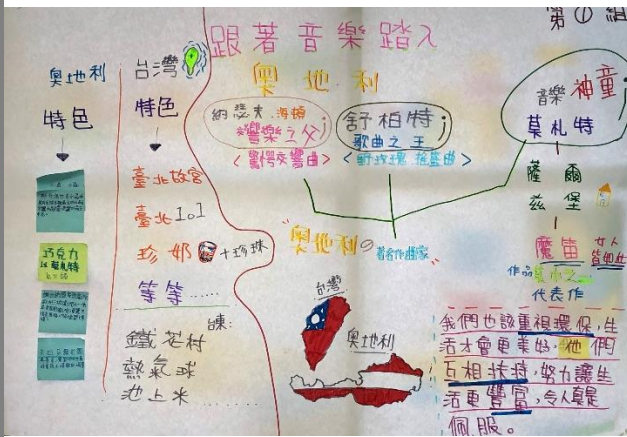 第①組
跟著音樂踏入
奧地利
奧地利
特色
巧克力
台灣
特色
臺北故宮
臺北101
珍奶 +珍珠
等等……
台東:
鐵花村
熱氣球
池上米
約瑟夫.海頓
交響樂之父
<驚愕交響曲>
舒柏特
歌曲之王
<野玫瑰、搖籃曲>
音樂神童
莫札特
薩爾
茲堡
魔笛
女人
皆如此
作品
代表作
"奧地利の
著名作曲家"
台灣
奧地利
我們也該重視環保,生
活才會更美好,他們
互相扶持,努力讓生
活更豐富,令人真是
佩服。